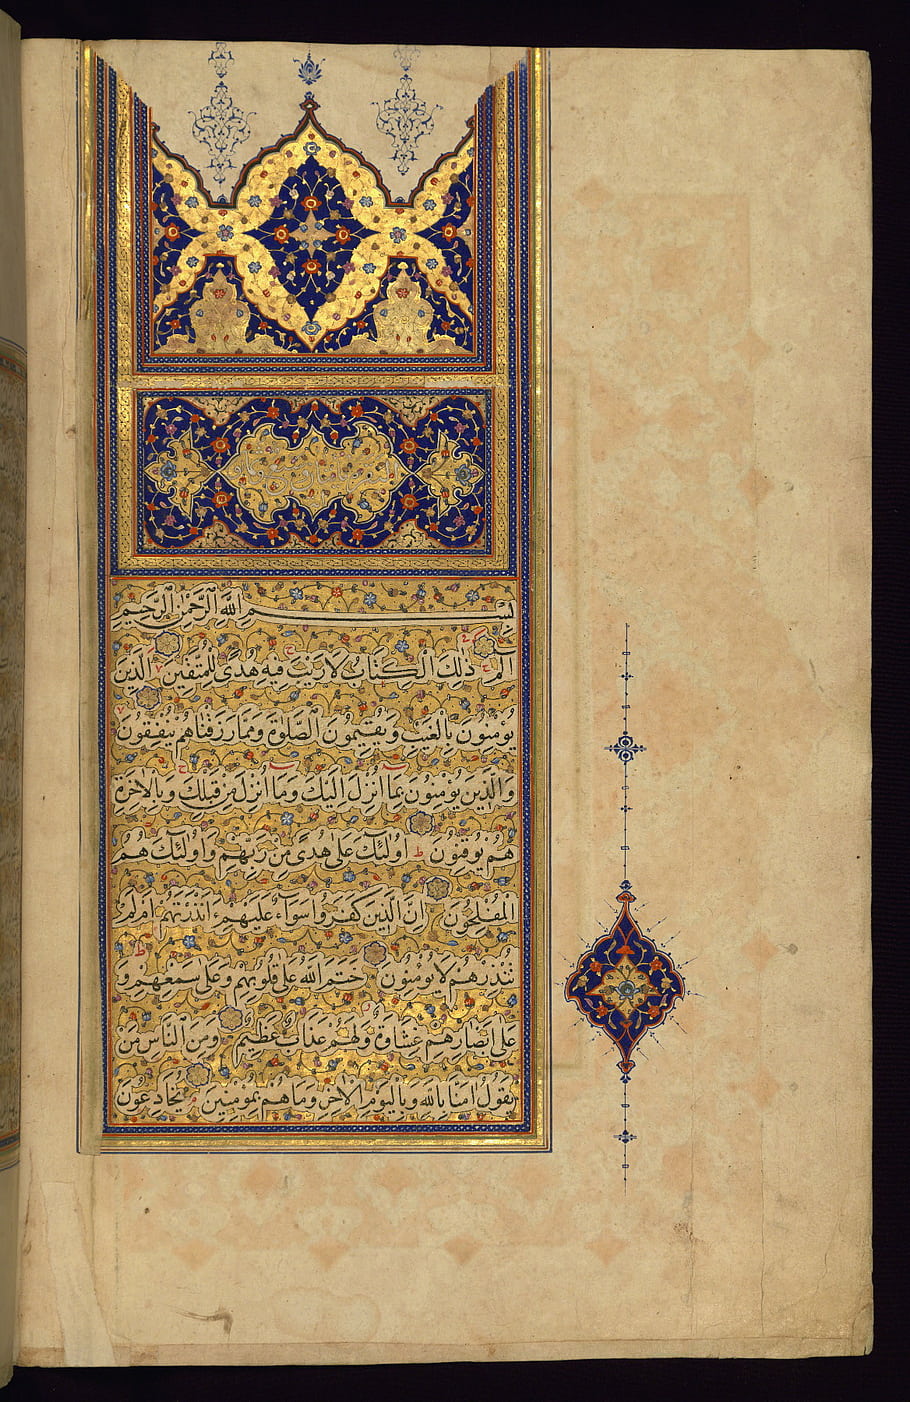 بسم الله الرحمن الرحيم
الم ذلك الكتاب لا ريب فيه هدى للمتقين الذين
يؤمنون بالغيب ويقيمون الصلوة ومما رزقناهم ينفقون
والذين يؤمنون بما انزل اليك وما انزل من قبلك وبالاخرة
هم يوقنون اولئك على هدى من ربهم واولئك هم
المفلحون ان الذين كفروا سواء عليهم ءانذرتهم ام لم
تنذرهم لا يؤمنون ختم الله على قلوبهم وعلى سمعهم و
على ابصارهم غشاوة ولهم عذاب عظيم ومن الناس من
يقول امنا بالله وباليوم الاخر وما هم بمؤمنين يخادعون